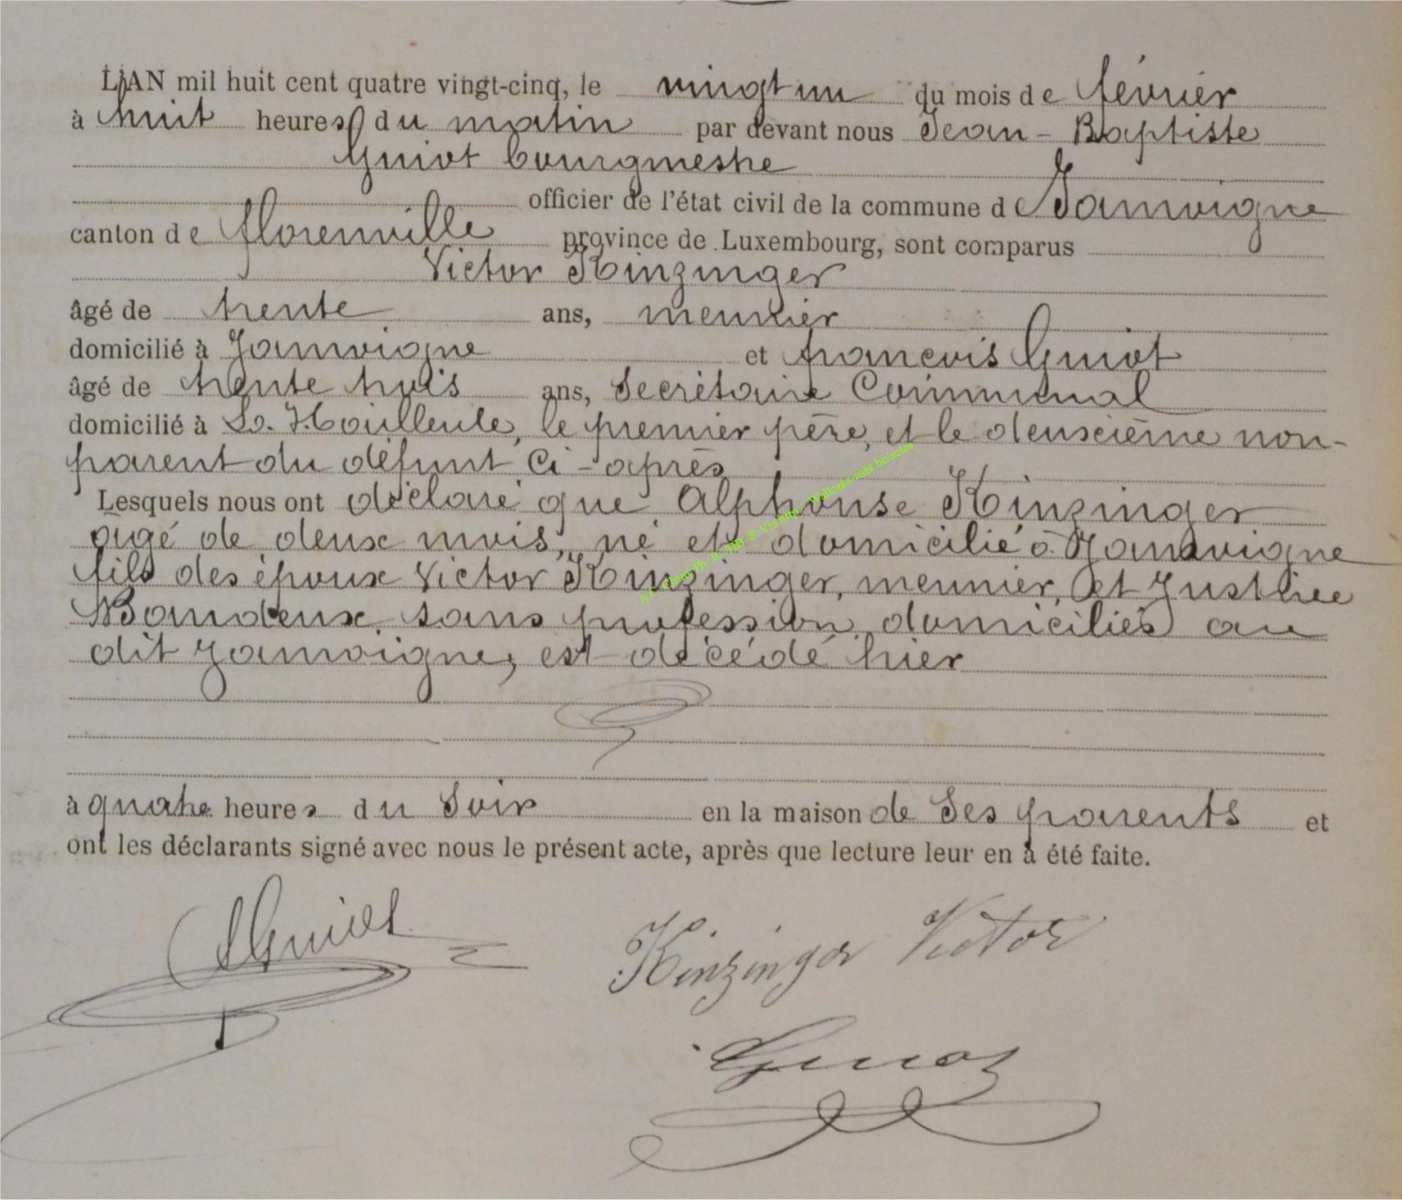 L'AN mil huit cent quatre vingt-cinq, le vingt un du mois de février
à huit heures du matin par devant nous Jean-Baptiste
Guiot bourgmestre
officier de l'état civil de la commune de Jamoigne
canton de florenville province de Luxembourg, sont comparus
Victor Kinzinger
âgé de trente ans, meunier
domicilié à Jamoigne et françois Guiot
âgé de trente trois ans, Secrétaire Communal
domicilié à La Hailleule, le premier père, et le deuxième non-
parent du défunt ci-après
Lesquels nous ont déclaré que Alphonse Kinzinger
agé de deux mois, né et domicilié à Jamoigne
fils des époux Victor Kinzinger, meunier, et Justine
Baudeux, sans profession, domiciliés au
dit Jamoigne, est décédé hier
à quatre heures du Soir en la maison de Ses parents et
ont les déclarants signé avec nous le présent acte, après que lecture leur en a été faite.
Guiot
Kinzinger Victor
Guiot